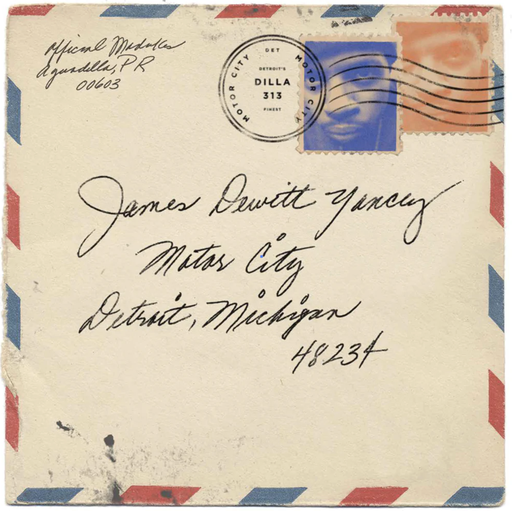 Official Medakes
Aguadilla, PR
00603
MOTOR CITY
DET
MOTOR CITY
DETROIT'S
DILLA
313
FINEST
James Dewitt Yancey
Motor City
Detroit, Michigan
48234